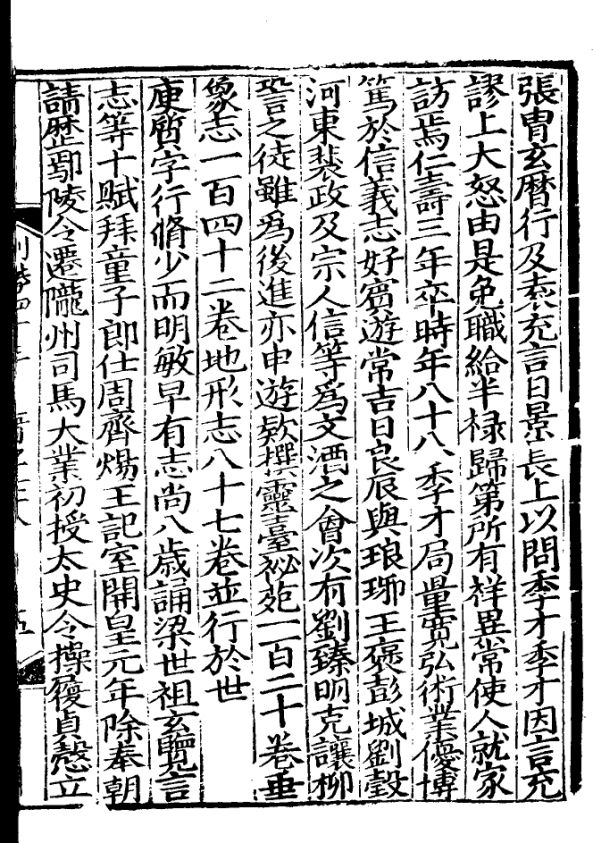 張胄玄曆行及袁充言日景長上以問季才季才因言充
謬上大怒由是免職給半祿歸第所有祥異常使人就家
訪焉仁壽三年卒時年八十八季才局量寬弘術業優博
篤於信義志好賓遊常吉日良辰與琅琊王褒彭城劉瑴
河東裴政及宗人信等爲文酒之會次有劉臻明克讓柳
䛒之徒雖爲後進亦申遊欵撰靈臺祕苑一百二十卷垂
象志一百四十二卷地形志八十七卷並行於世
庾質字行脩少而明敏早有志尚八歲誦梁世祖玄覽言
志等十賦拜童子郎仕周齊煬王記室開皇元年除奉朝
請歷鄢陵令遷隴州司馬大業初授太史令操履貞愨立